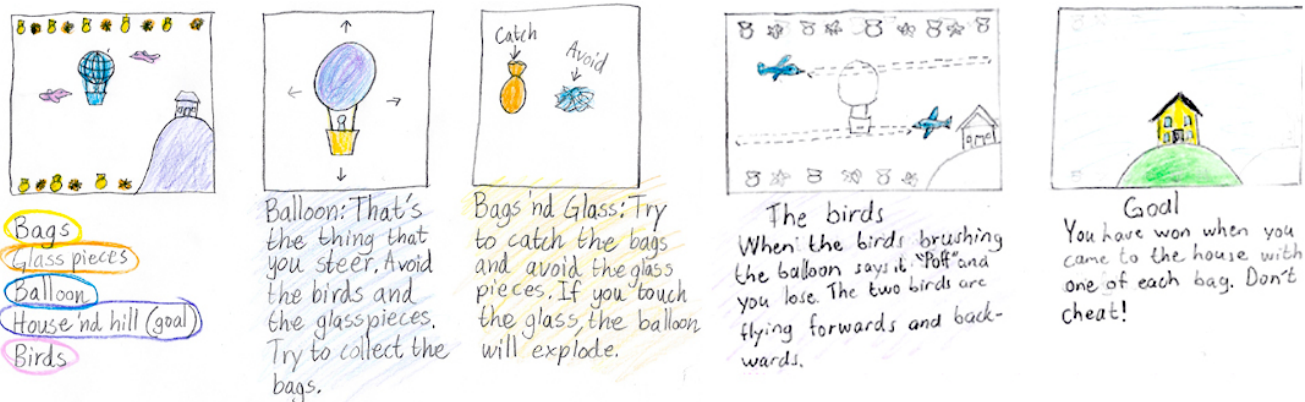 Bags
Glass pieces
Balloon
House 'nd hill (goal)
Birds
Balloon: That's
the thing that
you steer. Avoid
the birds and
the glasspieces.
Try to collect the
bags.
Catch
Avoid
Bags 'nd Glass: Try
to catch the bags
and avoid the glass
pieces. If you touch
the glass, the balloon
will explode.
The birds
When the birds brushing
the balloon says it "Poff" and
you lose. The two birds are
flying forwards and back-
wards.
Goal
You have won when you
came to the house with
one of each bag. Don't
cheat!